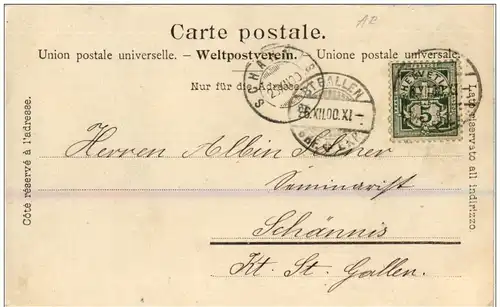 AE
Carte postale.
Union postale universelle. – Weltpostverein. – Unione postale universale.
Nur für die Adresse.
ST GALLEN
26.XII.00.XI–
HELVETIA
5
Côté réservé à l'adresse.
Lato riservato all indirizzo.
Herren Albin
Seminarist
Schännis
Kt. St. Gallen.